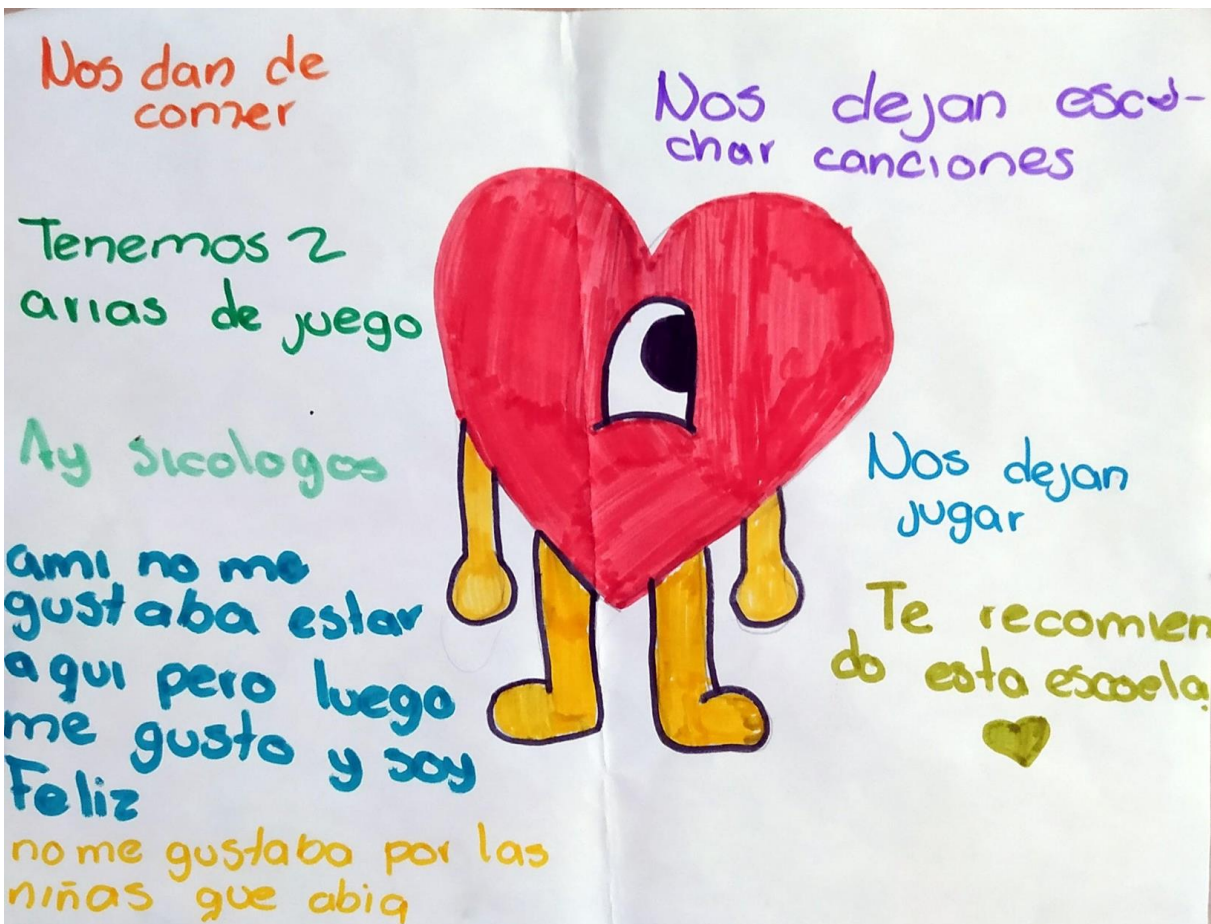 Nos dan de
comer
Tenemos 2
arias de juego
Ay sicologos
ami no me
gustaba estar
aqui pero luego
me gusto y soy
Feliz
no me gustaba por las
niñas que abia
Nos dejan escu-
char canciones
Nos dejan
jugar
Te recomien
do esta escoela